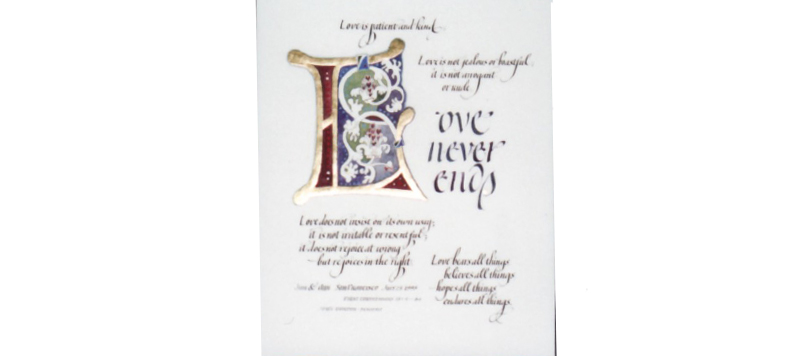 Love is patient and kind
Love is not jealous or boastful;
it is not arrogant
or rude
Love
never
ends
Love does not insist on its own way;
it is not irritable or resentful;
it does not rejoice at wrong
but rejoices in the right
Love bears all things
believes all things
hopes all things
endures all things